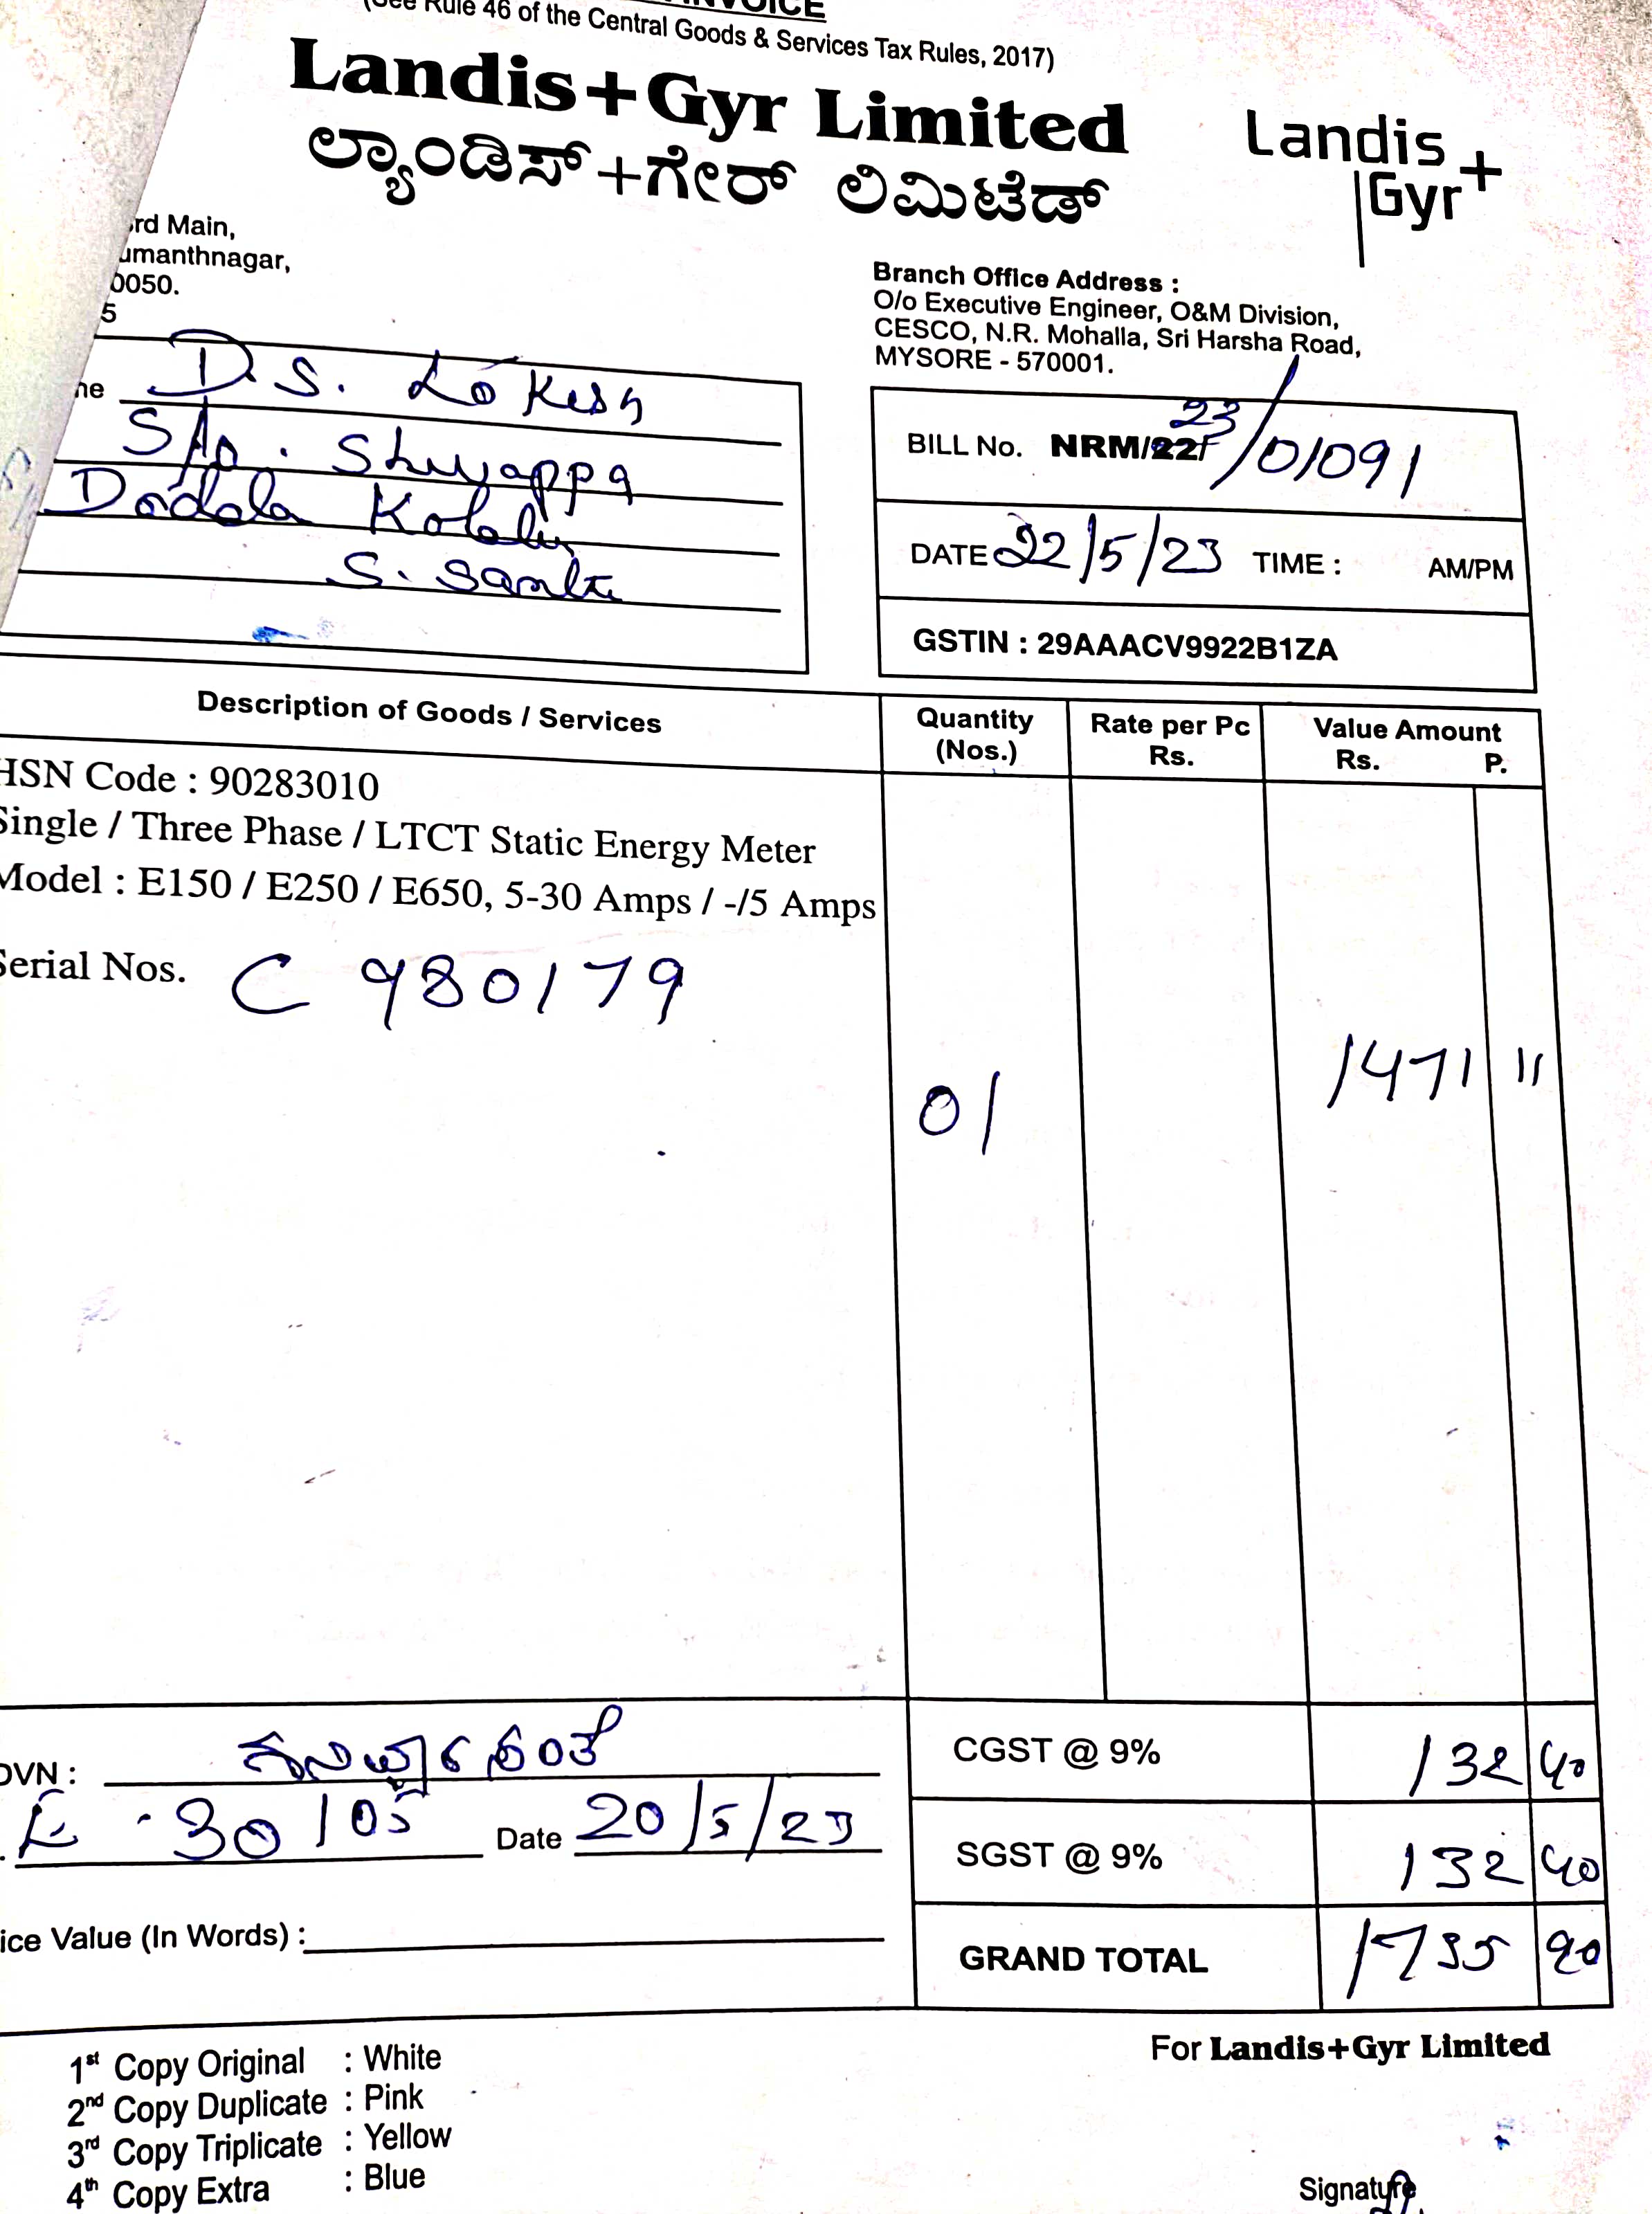 INVOICE
(See Rule 46 of the Central Goods & Services Tax Rules, 2017)
Landis+Gyr Limited
ಲ್ಯಾಂಡಿಸ್+ಗೇರ್ ಲಿಮಿಟೆಡ್
Landis
Gyr+
rd Main,
umanthnagar,
0050.
5
Branch Office Address :
O/o Executive Engineer, O&M Division,
CESCO, N.R. Mohalla, Sri Harsha Road,
MYSORE - 570001.
me D. S. Lokesh
S/o. Shivappa
S. Santhe
BILL No. NRM/22 23/01091
DATE 22/5/23 TIME : AM/PM
GSTIN : 29AAACV9922B1ZA
Description of Goods / Services
Quantity (Nos.)
Rate per Pc Rs.
Value Amount Rs. P.
HSN Code : 90283010
Single / Three Phase / LTCT Static Energy Meter
Model : E150 / E250 / E650, 5-30 Amps / -/5 Amps
Serial Nos. C 980179
01 1471 11
DVN :
30105 Date 20/5/23
ice Value (In Words) :
CGST @ 9% 132 40
SGST @ 9% 132 40
GRAND TOTAL 1735 90
For Landis+Gyr Limited
1st Copy Original : White
2nd Copy Duplicate : Pink
3rd Copy Triplicate : Yellow
4th Copy Extra : Blue
Signature